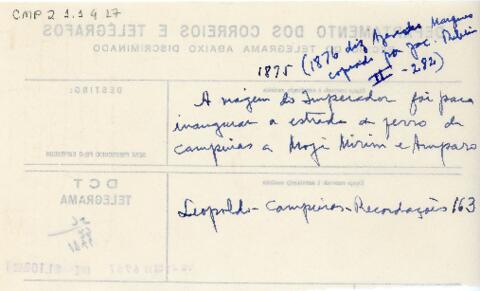 CMP 2.1.1.9.27
1875 (1876 diz Azevedo Marques
copiado por Jac. Ribeiro
III - 282)
A viagem do Imperador foi para
inaugurar a estrada de ferro de
Campinas a Mogi Mirim e Amparo
Leopoldo - Campinas - Recordações 163
DEPARTAMENTO DOS CORREIOS E TELÉGRAFOS
TELEGRAMA ABAIXO DISCRIMINADO
DESTINO:
DCT
TELEGRAMA